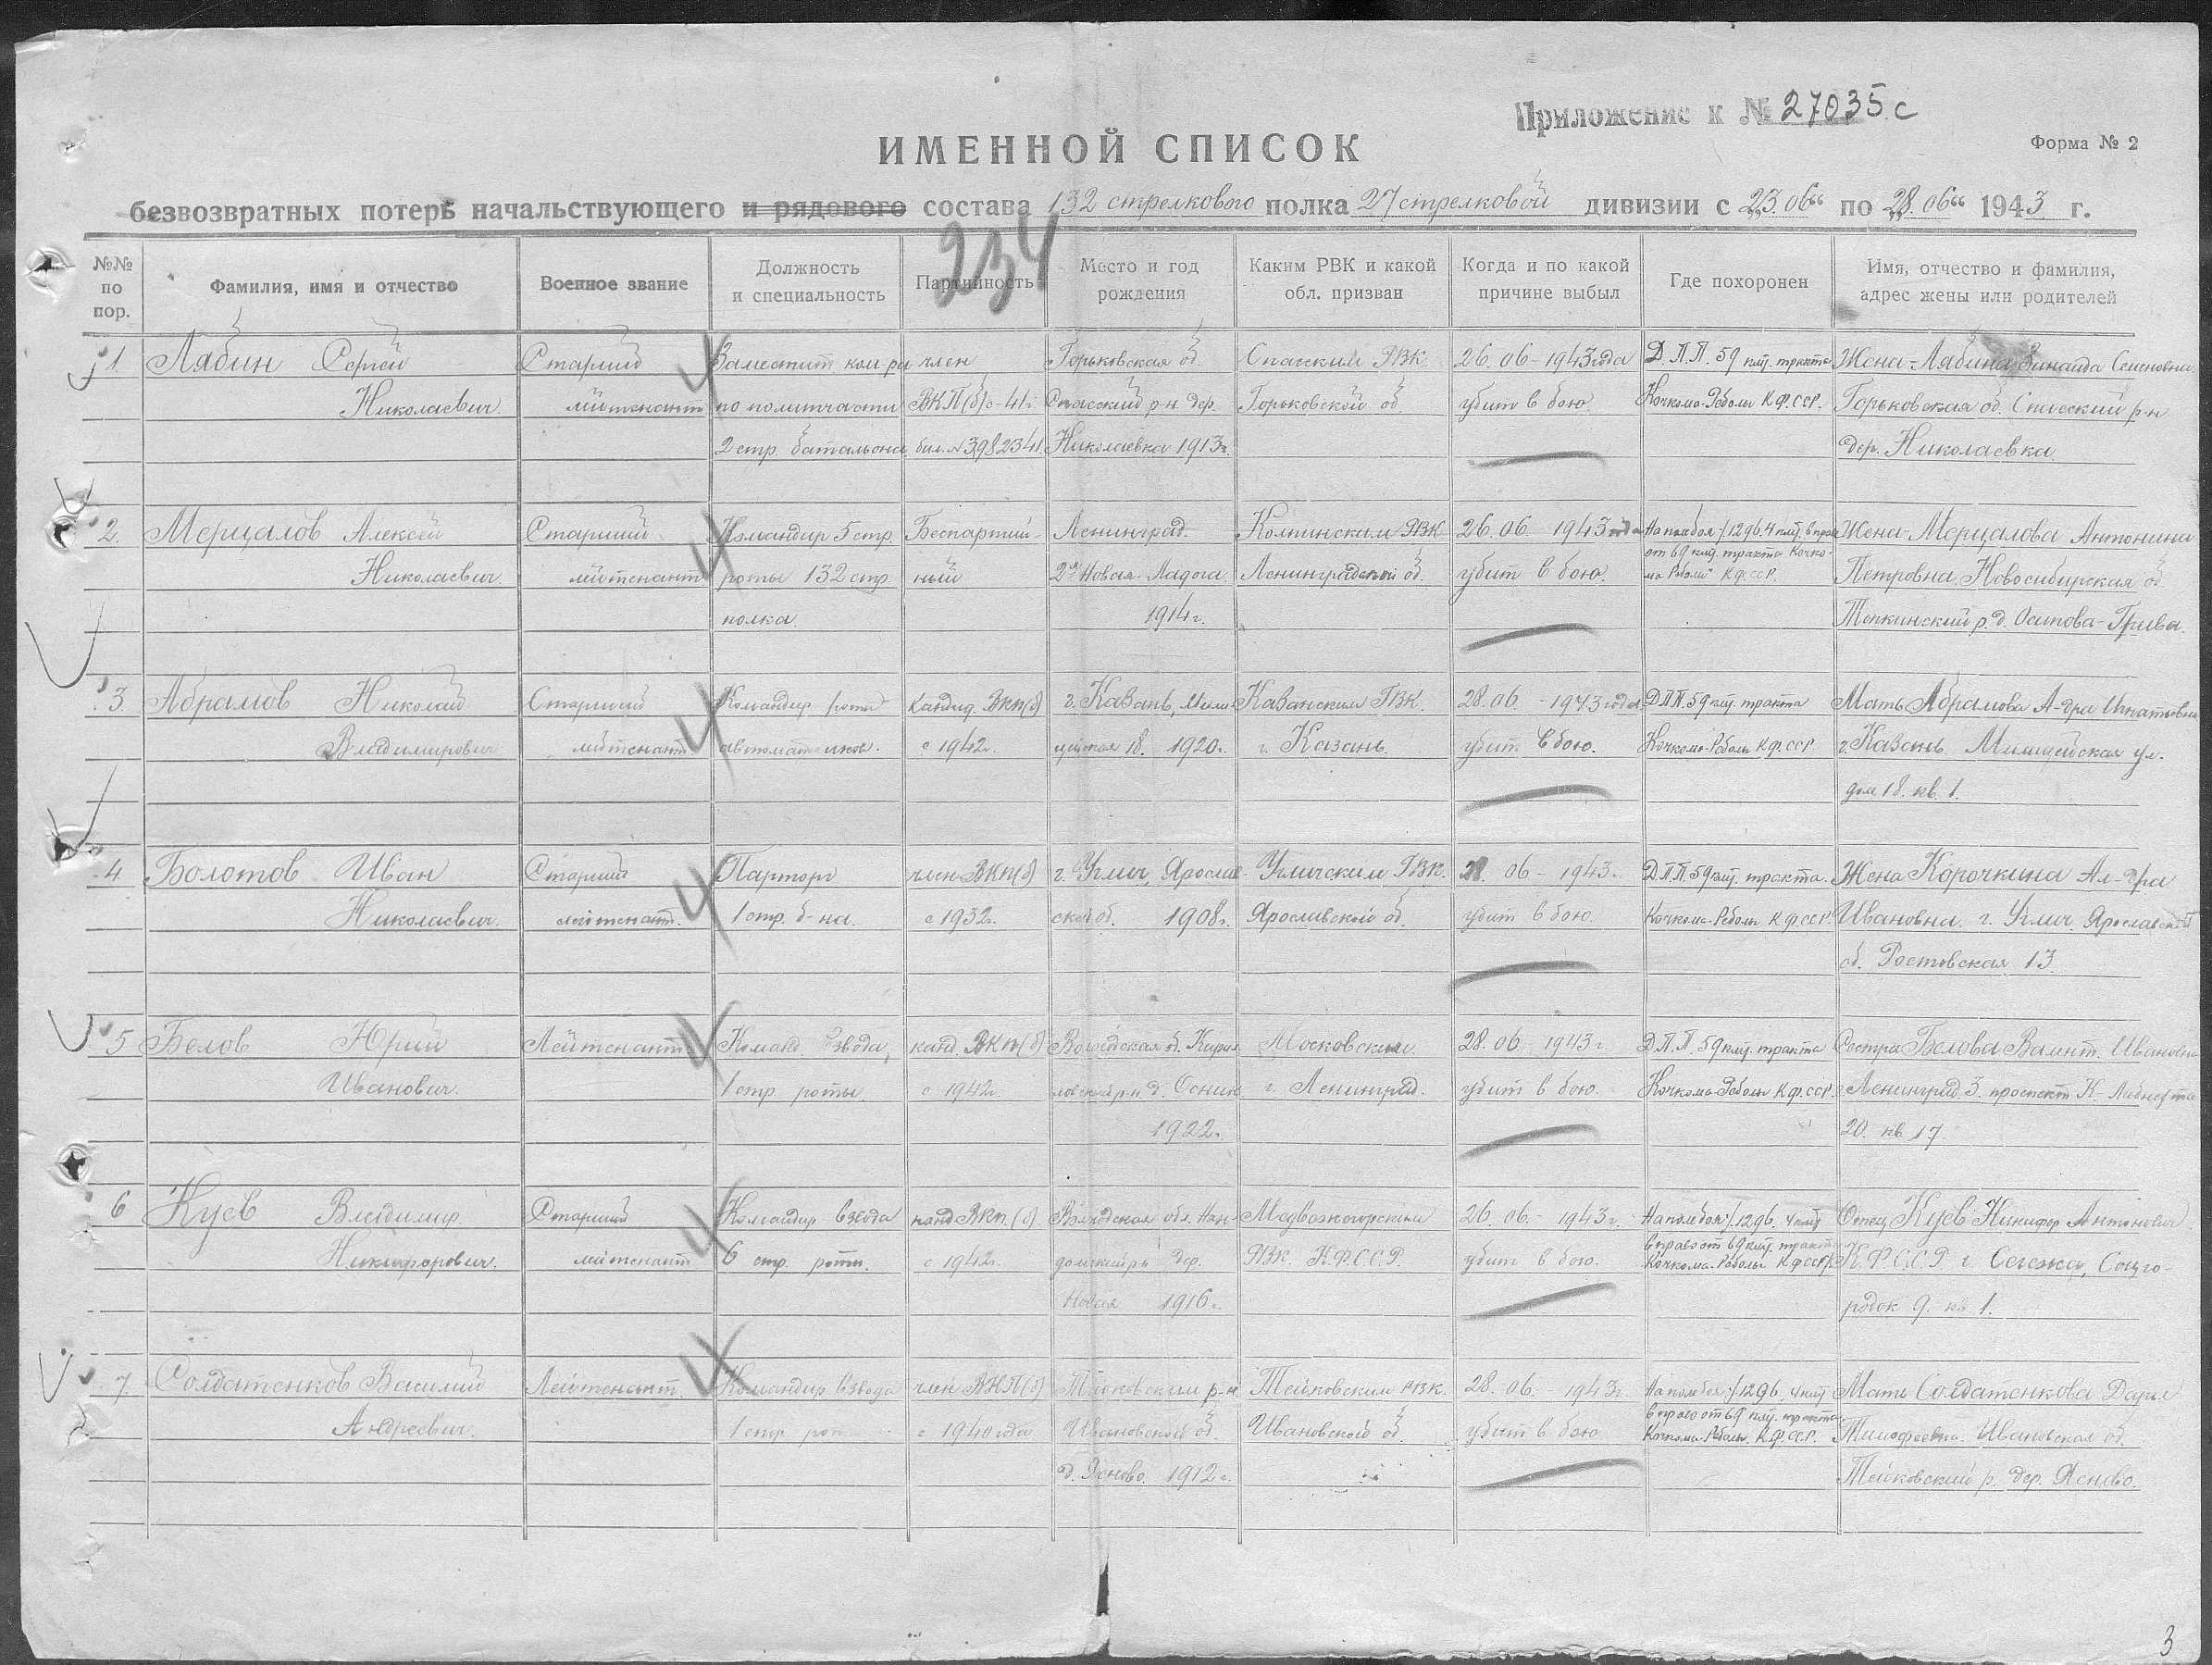 Приложение к № 27035с
ИМЕННОЙ СПИСОК
Форма № 2
безвозвратных потерь начальствующего и рядового состава 132 стрелкового полка 27 стрелковой дивизии с „23.06“ по „28.06“ 1943 г.
234
№№ по пор.
Фамилия, имя и отчество
Военное звание
Должность и специальность
Партийность
Место и год рождения
Каким РВК и какой обл. призван
Когда и по какой причине выбыл
Где похоронен
Имя, отчество и фамилия, адрес жены или родителей
1 Лябин Сергей Старший Заместит. ком-ра член Горьковская об. Спасским РВК 26.06-1943 года Д.П.П. 59 клм. тракта Жена-Лябина Зинаида Семеновна
Николаевич лейтенант по политчасти ВКП(б) с-41г. Спасский р-н дер. Горьковской об. убит в бою. Кочкома-Реболы К.Ф.ССР. Горьковская об. Спасский р-н
2 стр. батальона бил. № 3982341 Николаевка 1913г. дер. Николаевка.
2. Мерцалов Алексей Старший Командир 5 стр. Беспартий- Ленинград. Колпинским РВК 26.06-1943 года На поле боя 1296. 4 клм. вправо Жена-Мерцалова Антонина
от 69 клм. тракта Кочко-
Николаевич. лейтенант роты 132 стр. ный 2я Новая-Ладога Ленинградской об. убит в бою. ма-Реболы К.Ф.ССР. Петровна. Новосибирская об.
полка. 1914г. Топкинский р. д. Осипова-Грива.
3 Абрамов Николай Старший Командир роты кандид. ВКП(б) г. Казань, Мили- Казанским ГВК. 28.06-1943 года Д.П.П. 59 клм. тракта Мать Абрамова А-дра Игнатьевна
Владимирович лейтенант автоматчиков. с 1942г. цейская 18. 1920г. г. Казань. убит в бою. Кочкома-Реболы К.Ф.ССР г. Казань Милицейская ул.
дом 18. кв. 1.
4 Болотов Иван Старший Парторг член ВКП(б) г. Углич, Ярослав- Угличским ГВК. 28.06-1943г. Д.П.П. 59 клм. тракта. Жена Корочкина Ал-дра
Николаевич. лейтенант. 1 стр. б-на. с 1932г. ской об. 1908г. Ярославской об. убит в бою. Кочкома-Реболы К.Ф.ССР. Ивановна. г. Углич. Ярославской
об. Ростовская 13.
5 Белов Юрий Лейтенант. Команд. взвода, канд. ВКП(б) Вологодская об. Кирил- Московским 28.06-1943г. Д.П.П. 59 клм. тракта Сестра Белова Валент. Ивановна
Иванович. 1 стр. роты. с 1942г. ловский р-н. д. г. Ленинград. убит в бою. Кочкома-Реболы К.Ф.ССР. Ленинград 3. проспект К-Либкнехта
1922г. 20. кв 17.
6 Куев Владимир Старший Командир взвода канд ВКП(б) Вологодская обл. Медвежегорским 26.06-1943г. На поле боя 1296. 4 клм Отец Куев Никифор Антонович
Никифорович. лейтенант 6 стр. роты. с 1942г. дер. РВК К.Ф.С.С.Р. убит в бою. вправо от 69 клм. тракта К.Ф.С.С.Р г. Сегежа, Соцго-
Кочкома-Реболы К.Ф.ССР
Новая 1916г. родок 9. кв 1.
7. Солдатенков Василий Лейтенант. Командир взвода член ВКП(б) Тейковским р-н Тейковским РВК. 28.06 1943г. На поле боя 1296. 4 клм Мать Солдатенкова Дарья
Андреевич. 1 стр. роты с 1940 года Ивановской об. Ивановской об. убит в бою вправо от 69 клм. тракта Тимофеевна. Ивановская об.
Кочкома-Реболы. К.Ф.ССР.
д. Ясново. 1912г. Тейковский р. дер. Ясново.
3